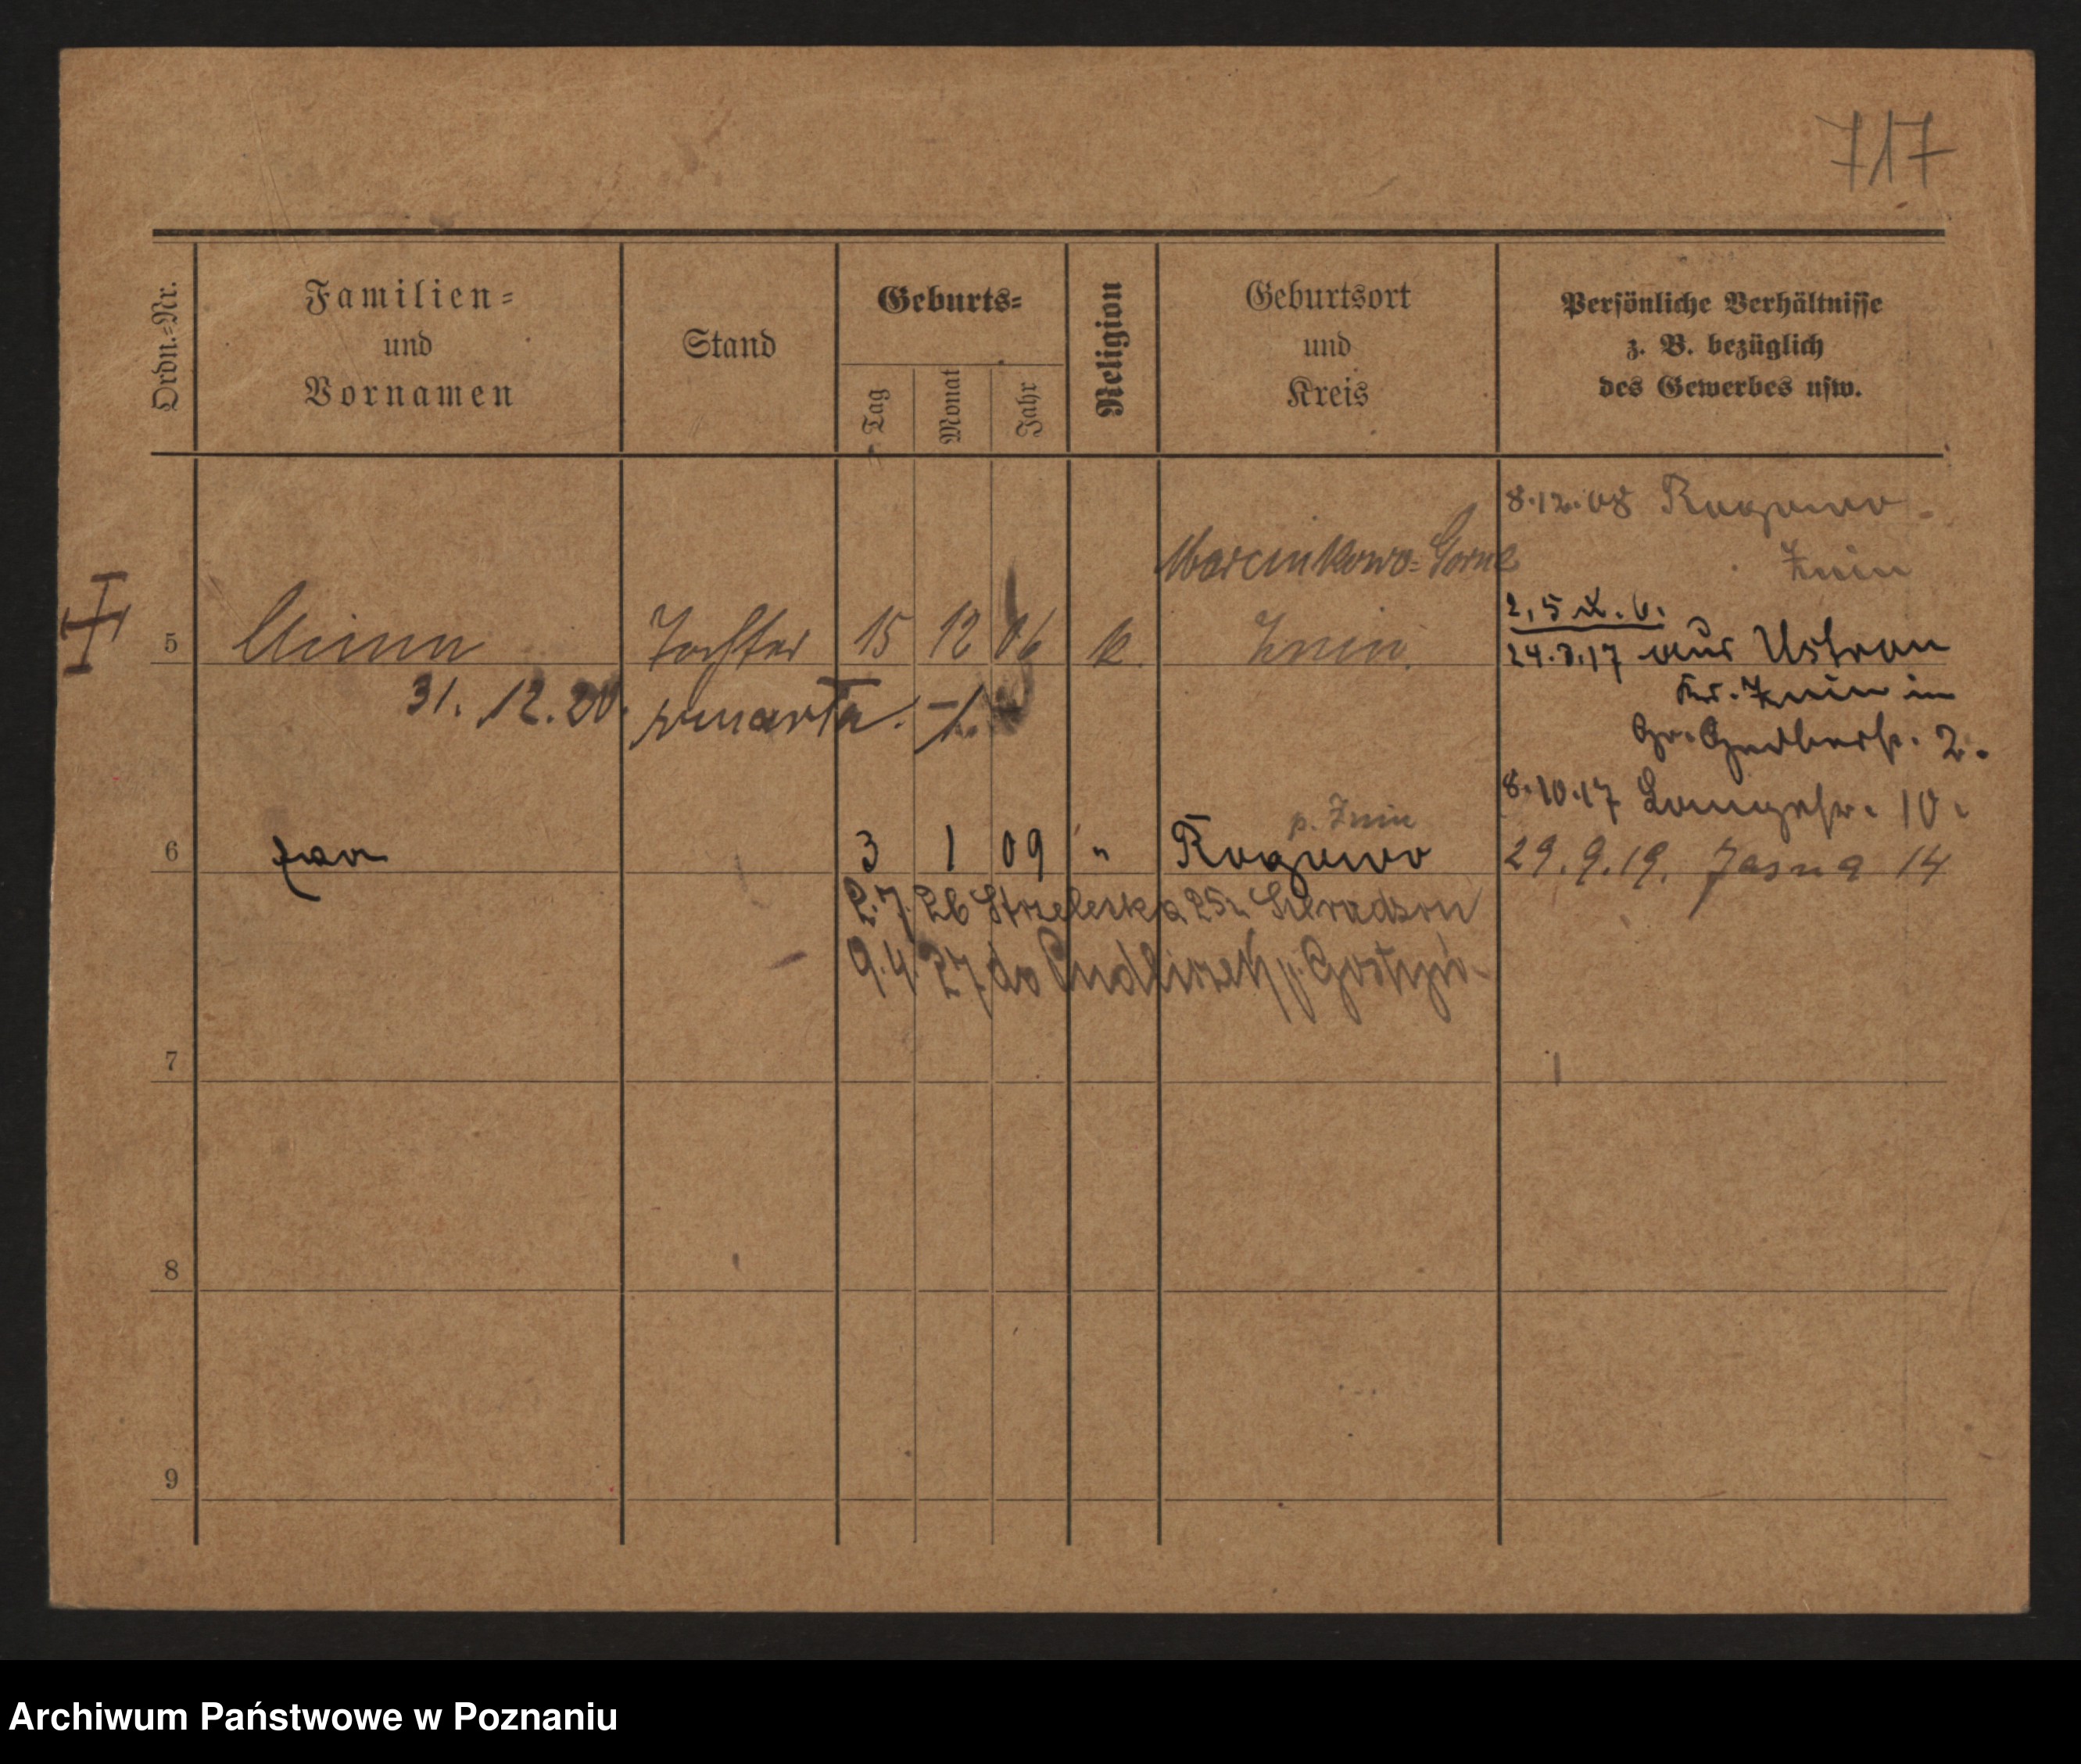 717
Ordn.-Nr.
Familien-
und
Vornamen
Stand
Geburts-
Tag
Monat
Jahr
Religion
Geburtsort
und
Kreis
Persönliche Verhältnisse
z. B. bezüglich
des Gewerbes usw.
8.12.08 Rogowo
Znin
Marcinkowo-Gorne
5 Tochter 15 12 06 k. Znin.
31. 12. 20. zmarła.
24.3.17 aus Ustron
Kr. Znin in
2.
8.10.17 10.
p. Znin
6 3 1 09 " Rogowo
29.9.19. Jasna 14
2.7.26 Strzelecka
9.4.27 do p. Gostyń
7
8
9
Archiwum Państwowe w Poznaniu